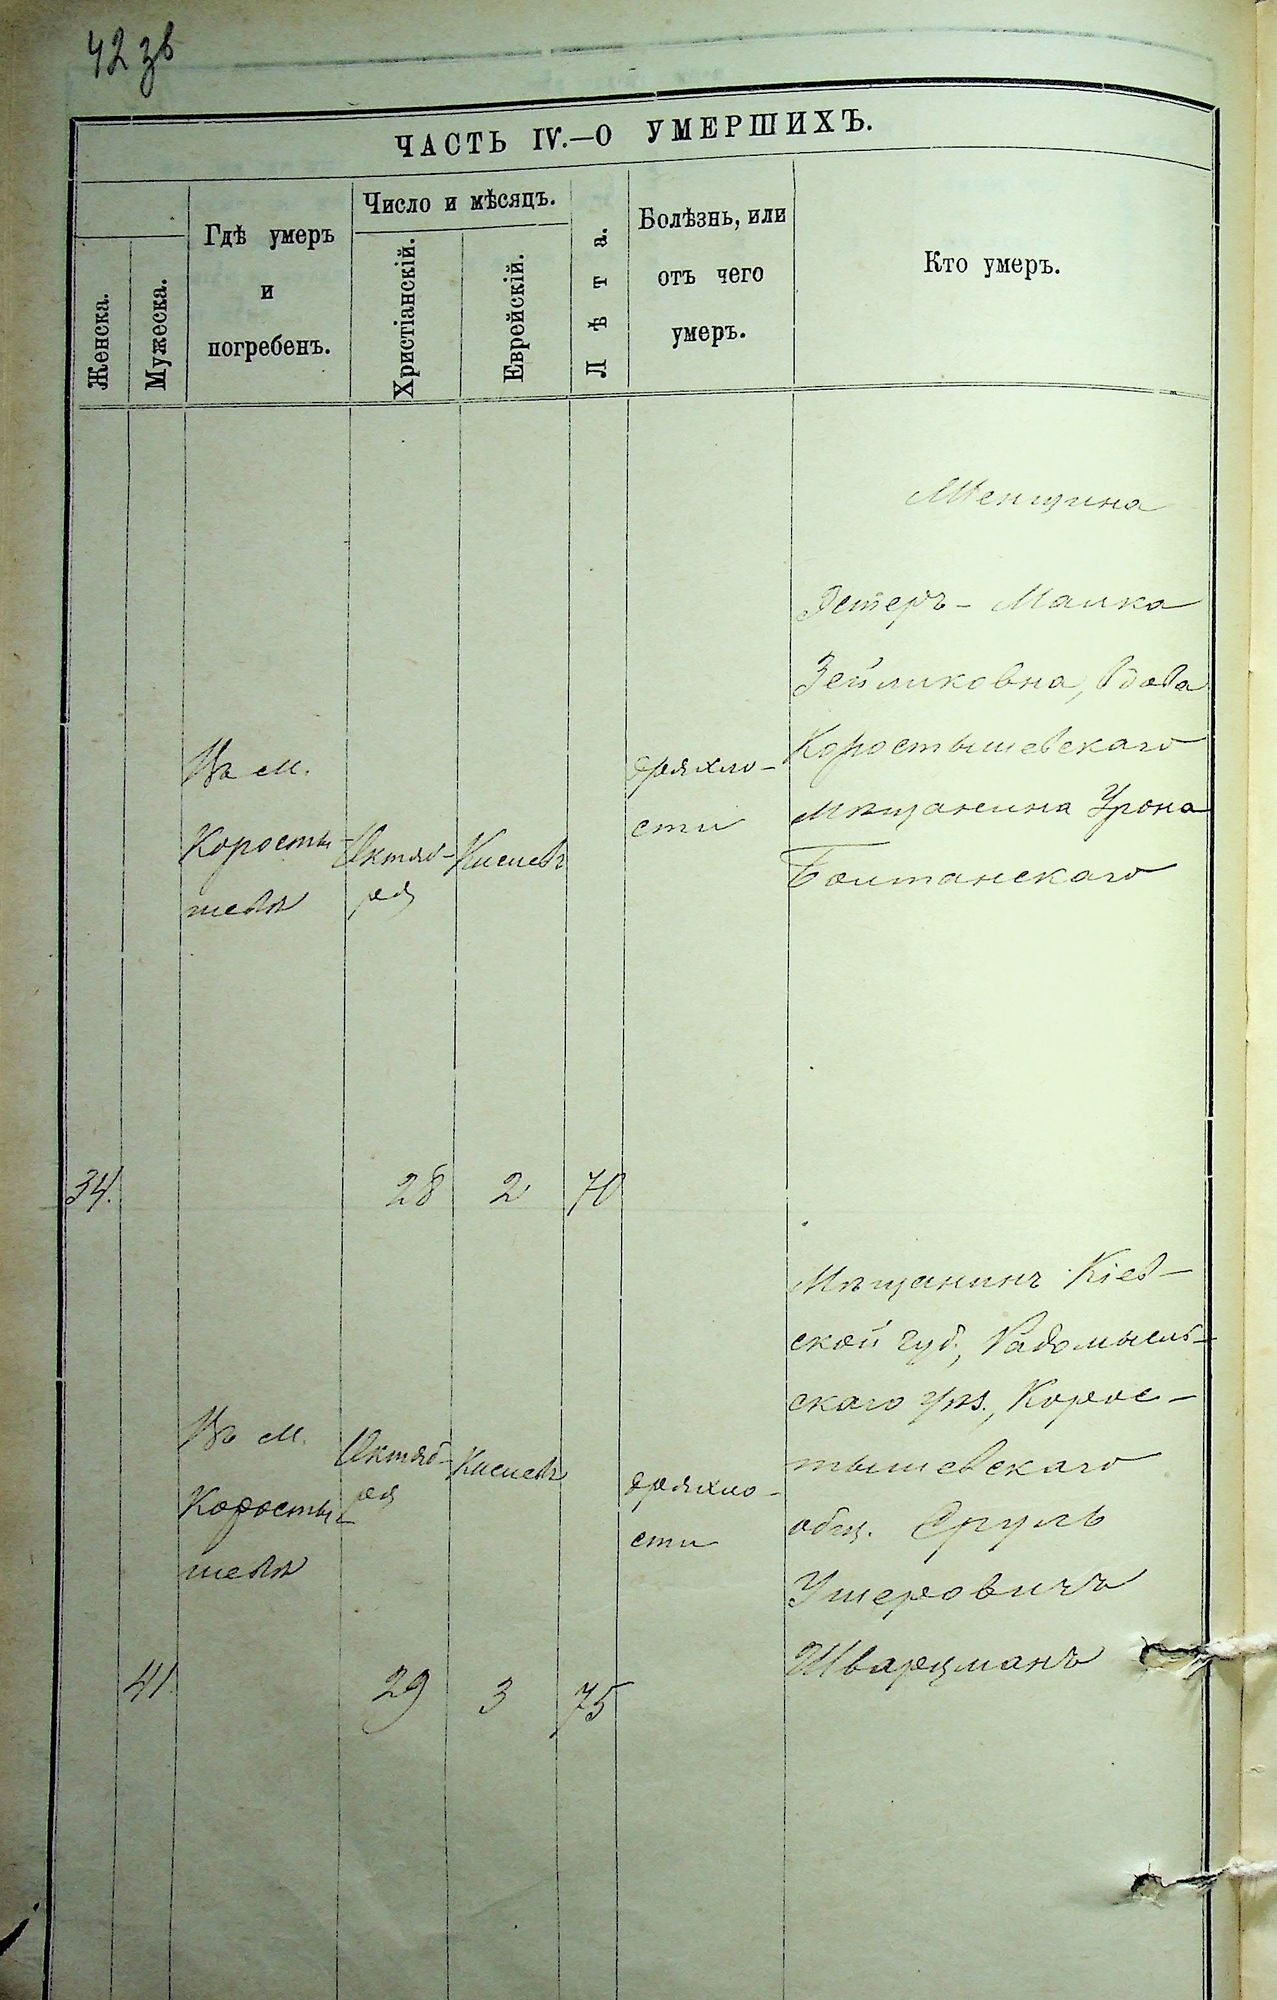 42 зв
ЧАСТЬ IV.—О УМЕРШИХЪ.
Женска.
Мужеска.
Гдѣ умеръ
и
погребенъ.
Число и мѣсяцъ.
Христіанскій.
Еврейскій.
Лѣта.
Болѣзнь, или
отъ чего
умеръ.
Кто умеръ.
34.
Въ м.
Коросты-
шевѣ
Октяб-
ря
28
Кислевъ
2
70
дряхло-
сти
Женщина
Эстеръ - Малка
Зейликовна, вдова
Коростышевскаго
мѣщанина Урона
Болтанскаго
41.
Въ м.
Коросты-
шевѣ
Октяб-
ря
29
Кислевъ
3
75
дряхло-
сти
Мѣщанинъ Кіев-
ской губ., Радомысль-
скаго уѣз., Корос-
тышевскаго
общ. Сруль
Ушеровичъ
Шварцманъ